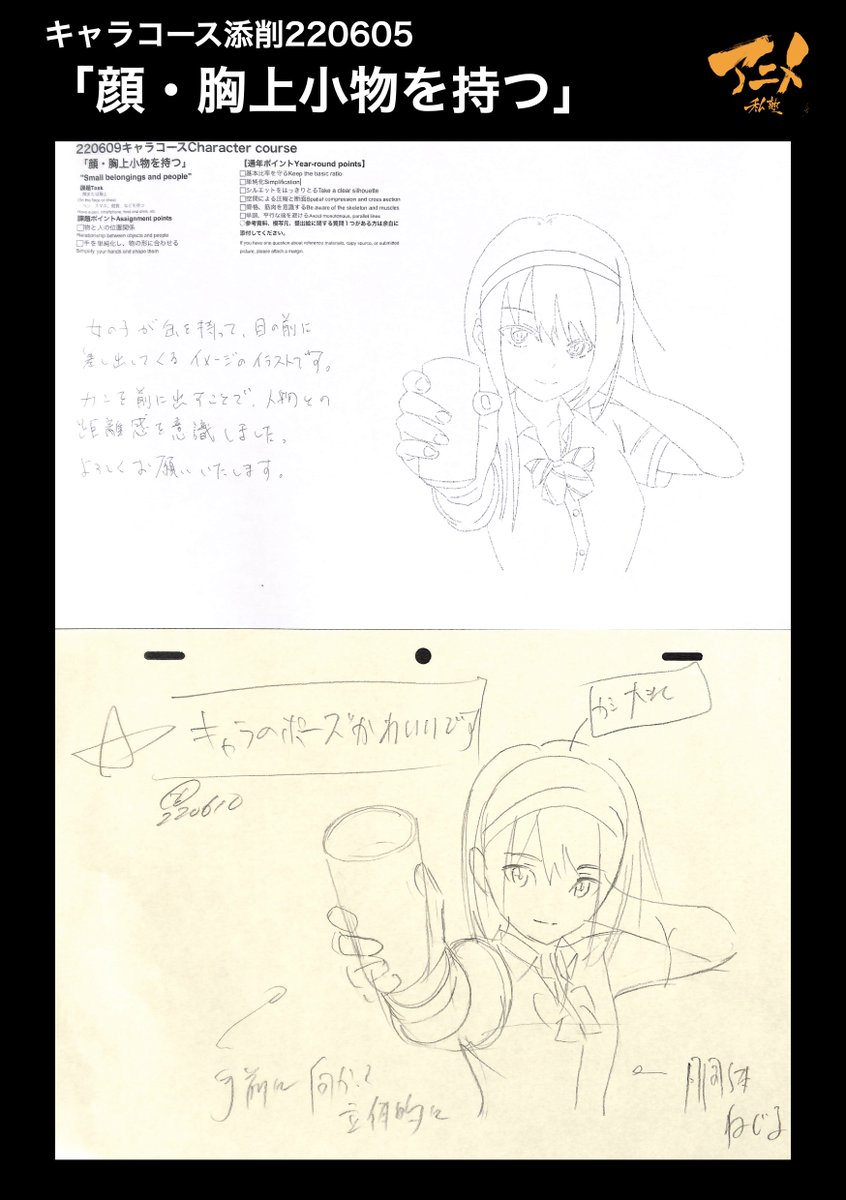 キャラコース添削220605
「顔・胸上小物を持つ」
アニメ
私塾
220609キャラコースCharacter course
「顔・胸上小物を持つ」
"Small belongings and people"
課題Task
課題ポイントAssignment points
□物と人の位置関係
Relationship between objects and people
□手を単純化し、物の形に合わせる
Simplify your hands and shape them
【通年ポイントYear-round points】
□基本比率を守るKeep the basic ratio
□単純化Simplification
□シルエットをはっきりとるTake a clear silhouette
□空間による圧縮と断面Spatial compression and cross section
□骨格、筋肉を意識するBe aware of the skeleton and muscles
□単調、平行な線を避けるAvoid monotonous, parallel lines
○参考資料、模写元、提出絵に関する質問１つがある方は余白に
添付してください。
If you have one question about reference materials, copy source, or submitted
picture, please attach a margin.
女の子が缶を持って、目の前に
差し出してくるイメージのイラストです。
カンを前に出すことで、人物との
距離感を意識しました。
よろしくお願いいたします。
キャラのポーズかわいいです
220610
手前に向かって
立体的に
胴体
ねじる